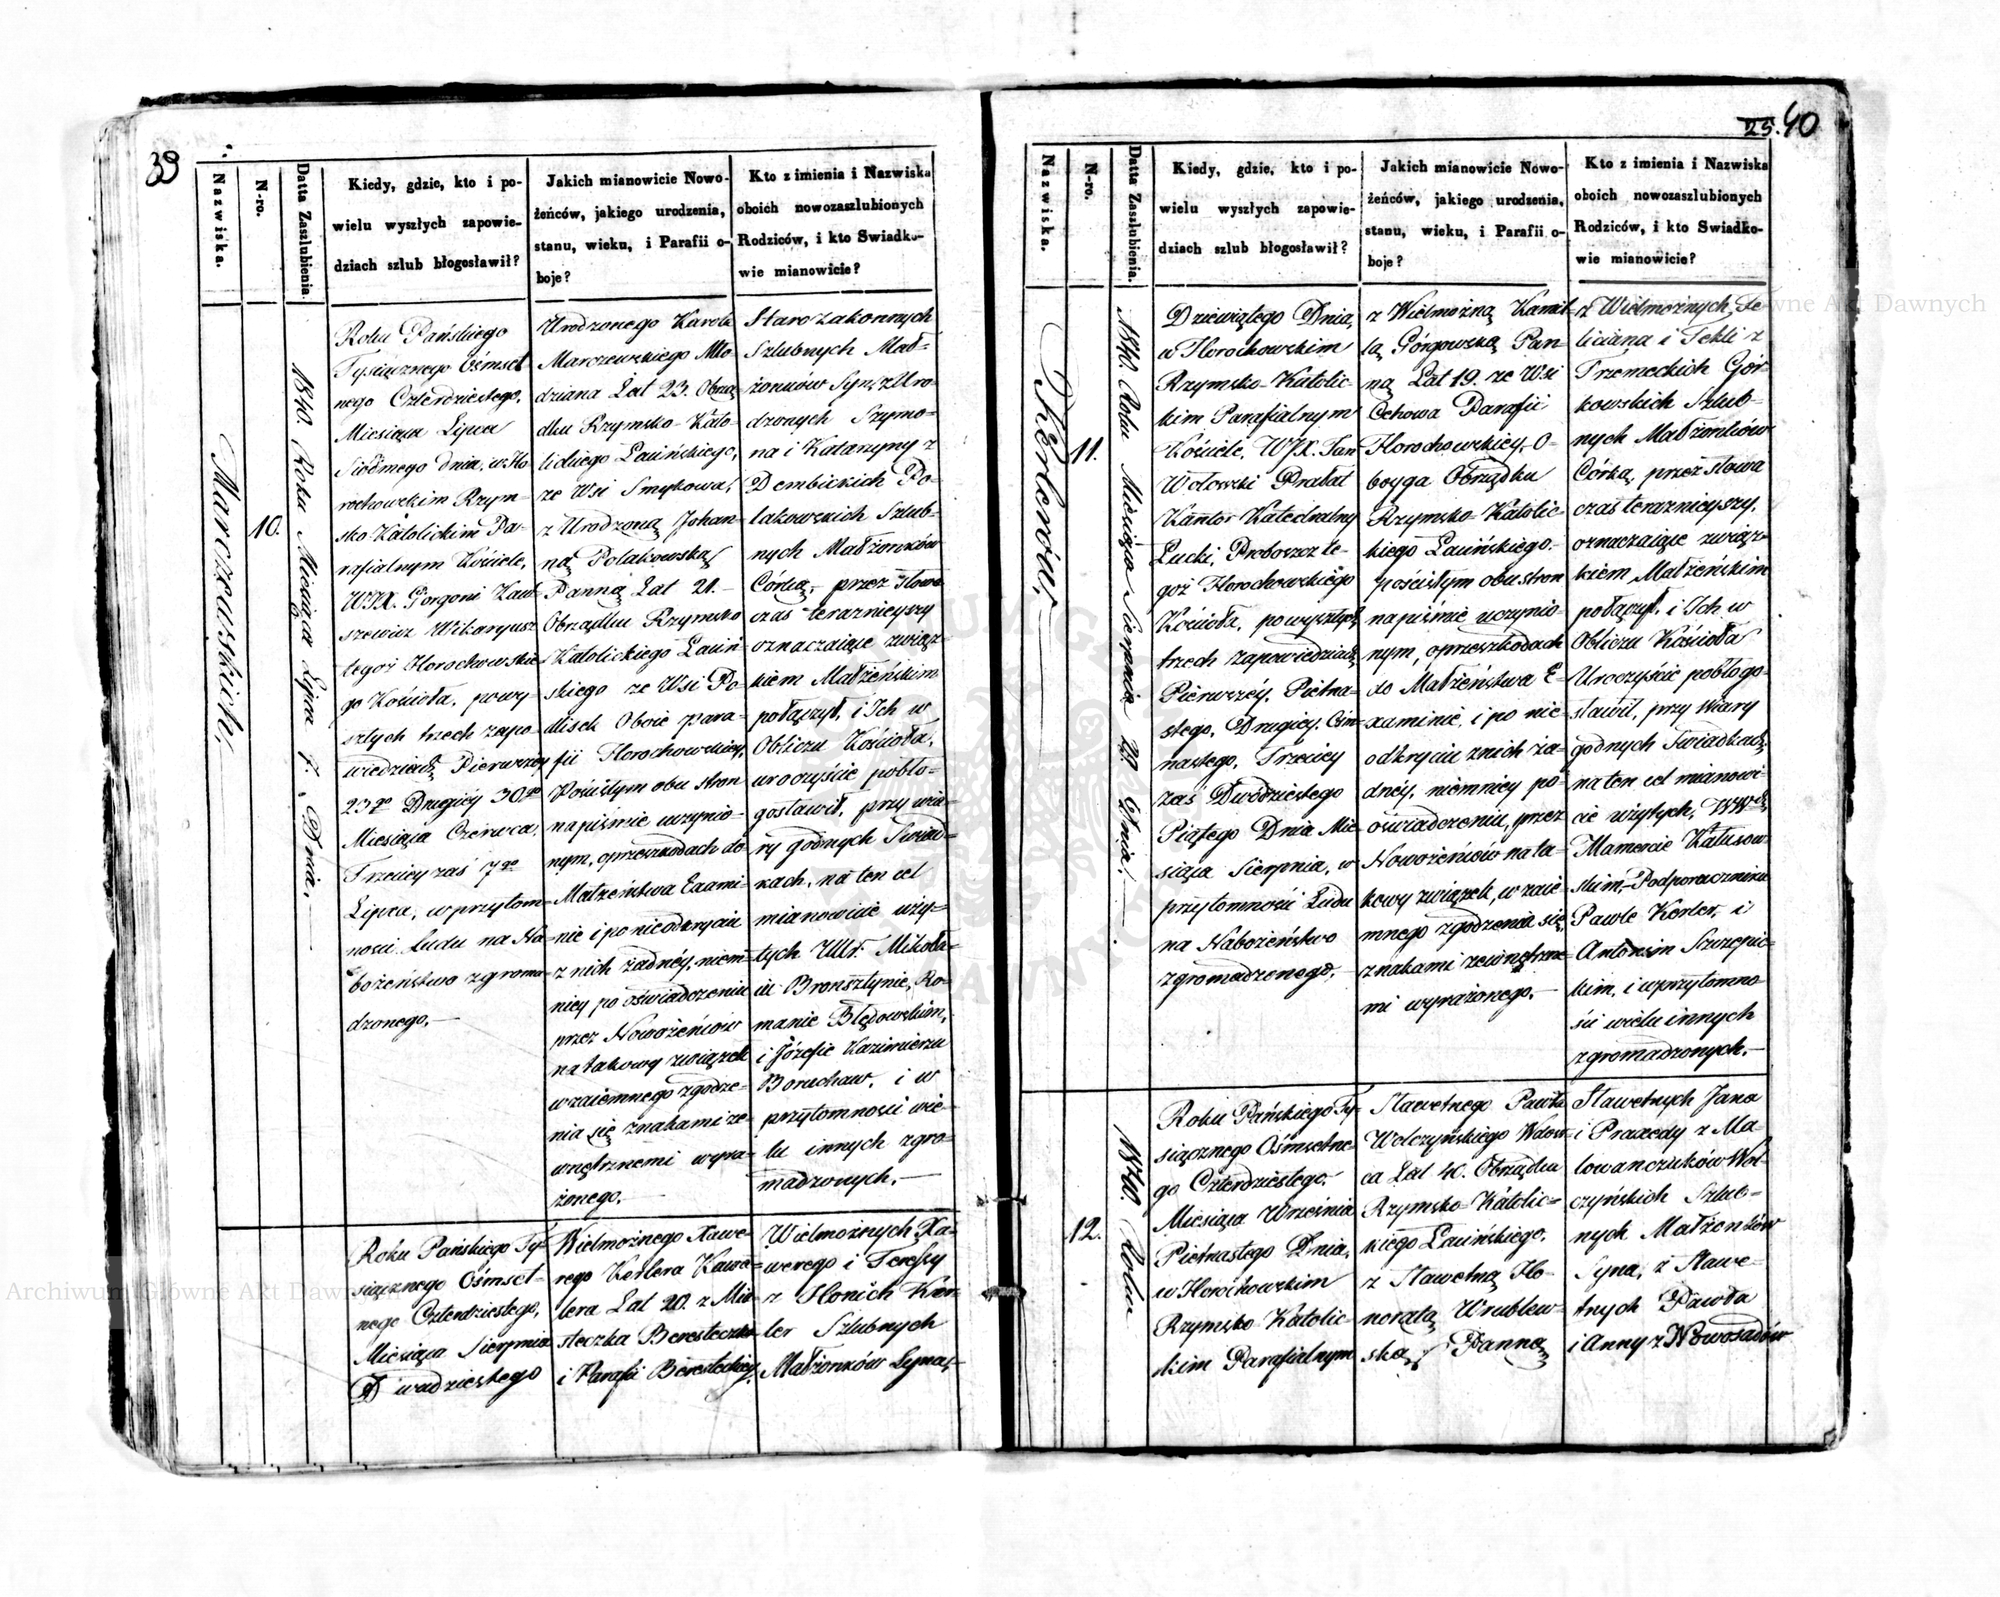 39
Nazwiska.
N-ro.
Datta Zaszlubienia.
Kiedy, gdzie, kto i po-
wielu wyszłych zapowie-
dziach szlub błogosławił?
Jakich mianowicie Nowo-
żeńców, jakiego urodzenia,
stanu, wieku, i Parafii o-
boje?
Kto z imienia i Nazwiska
oboich nowozaszlubionych
Rodziców, i kto Swiadko-
wie mianowicie?
Marczewskich,
10.
1840. Roku Miesiąca Lipca 7. Dnia,
Roku Pańskiego
Tysiącznego Ośmset
nego Czterdziestego,
Miesiąca Lipca
Siódmego dnia, w Ho
rochowskim Rzym-
sko-Katolickim Pa-
rafialnym Kościele,
WJX. Gorgoni
szewicz Wikaryusz
tegoż Horochowskie
go Kościoła, powy
szłych trzech zapo
wiedziach Pierwszéy
23go Drugiéy 30go
Miesiąca Czerwca,
Trzeciey zaś 7go
Lipca, w przytom-
ności Ludu na Na
bożeństwo zgroma
dzonego,—
Urodzonego Karola
Marczewskiego Mło
dziana Lat 23. Obrzą
dku Rzymsko-Kato-
lickiego Łacińskiego,
ze Wsi Smykowa,
z Urodzoną Johan-
ną Polakowską
Panną Lat 21.—
Obrządku Rzymsko
Katolickiego Łaciń
skiego ze Wsi Po
dlisek Oboie para-
fii Horochowskiey,
Pościsłym obu stron
napiśmie uczynio-
nym, oprzeszkodach do
Małżeństwa Exami-
nie i po nieodkryciu
z nich żadnéy, niem-
niey po oświadczeniu
przez Nowożeńców
na takowy związek
wzaiemnego zgodze-
nia się znakami ze-
wnętrznemi wyra-
żonego,—
Starozakonnych
Szlubnych Mał-
żonków Syna, z Uro-
dzonych Szymo-
na i Katarzyny z
Dembickich Po-
lakowskich Szlub-
nych Małżonków
Córką, przez słowa
czas teraznieyszy
oznaczaiące związ-
kiem Małżeńskim
połączył, i Ich w
Obliczu Kościoła,
uroczyście pobło-
gosławił, przy wia-
ry godnych Swiad-
kach, na ten cel
mianowicie uży-
tych Ur. Mikoła-
iu Bronsztynie, Ro-
manie Błędowskim,
i Józefie Kazimierzu
i w
przytomności wie-
lu innych zgro-
madzonych,—
Roku Pańskiego Ty-
siącznego Ośmset-
nego Czterdziestego,
Miesiąca Sierpnia
Dwudziestego
Wielmożnego Xawe-
rego Kerlera Kawa-
lera Lat 20. z Mia-
steczka Beresteczka
i Parafii Beresteckiey,
Wielmożnych Xa-
werego i Teressy
z Ker-
ler Szlubnych
Małżonków Syna,
25. 40
Nazwiska.
N-ro.
Datta Zaszlubienia.
Kiedy, gdzie, kto i po-
wielu wyszłych zapowie-
dziach szlub błogosławił?
Jakich mianowicie Nowo-
żeńców, jakiego urodzenia,
stanu, wieku, i Parafii o-
boje?
Kto z imienia i Nazwiska
oboich nowozaszlubionych
Rodziców, i kto Swiadko-
wie mianowicie?
Kerlerów,
11.
1840. Roku Miesiąca Sierpnia 29. Dnia,
Dziewiątego Dnia,
w Horochowskim
Rzymsko-Katolic-
kim Parafialnym
Kościele, WJX. Jan
Wołowski Prałat
Kantor Katedralny
Łucki, Proboszcz te-
goż Horochowskiego
Kościoła, powyszłych
trzech zapowiedziach
Pierwszéy, Piętna-
stego, Drugiéy, Ośm-
nastego, Trzeciey
zaś Dwódziestego
Piątego Dnia Mie
siąca Sierpnia, w
przytomności Ludu
na Nabożeństwo
zgromadzonego,—
z Wielmożną Kamil-
lą Górgowską Pan-
ną Lat 19. ze Wsi
Cehowa Parafii
Horochowskiey, O-
boyga Obrządku
Rzymsko-Katolic-
kiego Łacińskiego.
pościsłym obu stron
napiśmie uczynio-
nym, oprzeszkodach
do Małżeństwa E-
xaminie, i po nie-
odkryciu znich ża-
dney, niemniey po
oświadczeniu, przez
Nowożeńców na ta-
kowy związek, wzaie
mnego zgodzenia się
znakami zewnętrzne-
mi wyrażonego,—
z Wielmożnych Fe
liciana i Tekli z
Trzemeckich Gór-
kowskich Szlub-
nych Małżonków
Córką, przez słowa
czas teraznieyszy,
oznaczaiące związ-
kiem Małżeńskim
połączył, i Ich w
Obliczu Kościoła
Uroczyście pobłogo-
sławił, przy wiary
godnych Swiadkach,
na ten cel mianowi-
cie użytych,
Mamercie Katusow-
skim,- Podporuczniku
Pawle Kerler, i
Antonim Szczepic-
kim, i wprzytomno
ści wielu innych
zgromadzonych,—
12.
1840. Roku
Roku Pańskiego Ty-
siącznego Ośmsetne-
go Czterdziestego,
Miesiąca Września
Piętnastego Dnia,
w Horochowskim
Rzymsko Katolic-
kim Parafialnym
Sławetnego Pawła
Wolczyńskiego Wdow-
ca Lat 40. Obrządku
Rzymsko-Katolic-
kiego Łacińskiego,
z Sławetną Ho-
noratą Wrublew-
ską, Panną
Sławetnych Jana
i Praxedy z Ma-
lowanczuków Wol-
czyńskich Szlub-
nych Małżonków
Syna, z Sławe-
tnych Pawła
i Anny z Nowosadów
Archiwum Główne Akt Dawnych
Archiwum Główne Akt Dawnych